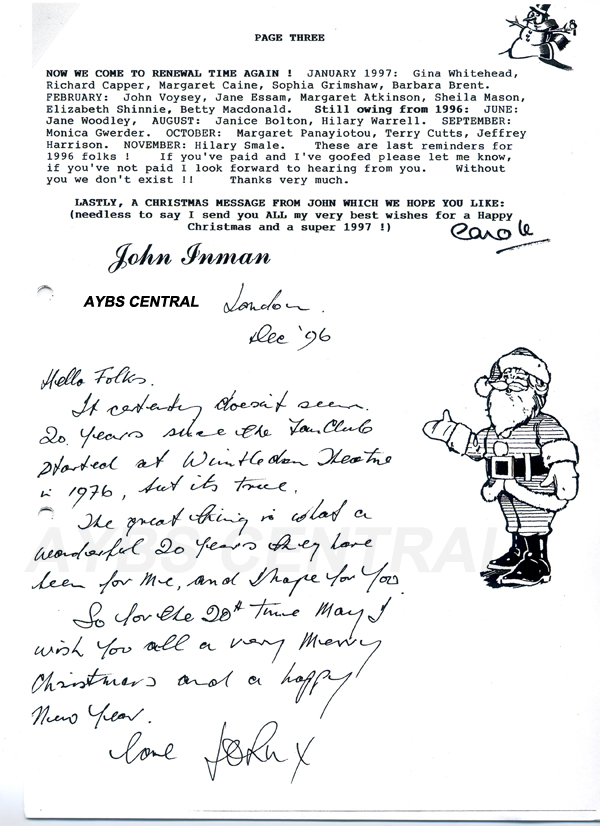 PAGE THREE
NOW WE COME TO RENEWAL TIME AGAIN ! JANUARY 1997: Gina Whitehead,
Richard Capper, Margaret Caine, Sophia Grimshaw, Barbara Brent.
FEBRUARY: John Voysey, Jane Essam, Margaret Atkinson, Sheila Mason,
Elizabeth Shinnie, Betty Macdonald. Still owing from 1996: JUNE:
Jane Woodley, AUGUST: Janice Bolton, Hilary Warrell. SEPTEMBER:
Monica Gwerder. OCTOBER: Margaret Panayiotou, Terry Cutts, Jeffrey
Harrison. NOVEMBER: Hilary Smale. These are last reminders for
1996 folks ! If you've paid and I've goofed please let me know,
if you've not paid I look forward to hearing from you. Without
you we don't exist !! Thanks very much.
LASTLY, A CHRISTMAS MESSAGE FROM JOHN WHICH WE HOPE YOU LIKE:
(needless to say I send you ALL my very best wishes for a Happy
Christmas and a super 1997 !)
Carole
John Inman
AYBS CENTRAL
London.
Dec '96
Hello Folks.
It certainly doesn't seem
20 years since the Fan Club
started at Wimbledon Theatre
in 1976, but its true.
The great thing is what a
wonderful 20 years they have
been for me, and I hope for you.
So for the 20th time May I
wish you all a very Merry
Christmas and a happy
New Year.
love JOHN X
AYBS CENTRAL